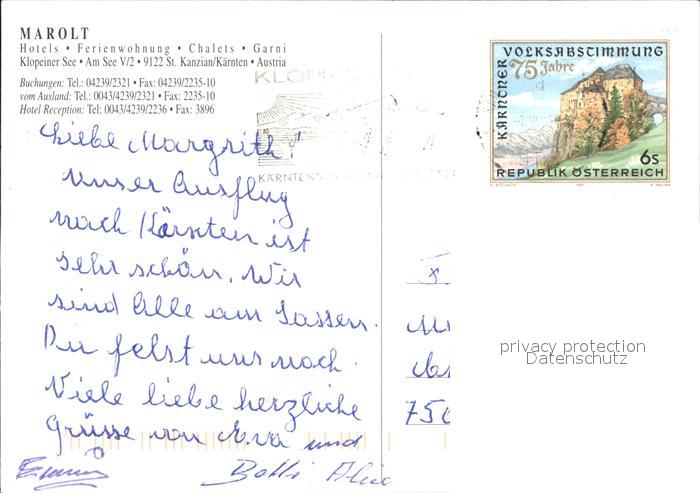 MAROLT
Hotels • Ferienwohnung • Chalets • Garni
Klopeiner See • Am See V/2 • 9122 St. Kanzian/Kärnten • Austria
Buchungen: Tel.: 04239/2321 • Fax: 04239/2235-10
vom Ausland: Tel.: 0043/4239/2321 • Fax: 2235-10
Hotel Reception: Tel: 0043/4239/2236 • Fax: 3896
KLOPEIN
KÄRNTENS
KÄRNTNER VOLKSABSTIMMUNG
75 Jahre
6s
REPUBLIK ÖSTERREICH
Liebe Margrith!
Unser Ausflug
nach Kärnten ist
sehr schön. Wir
sind Alle am Jassen.
Du felst uns noch.
Viele liebe herzliche
Grüsse von Eva und
privacy protection
Datenschutz